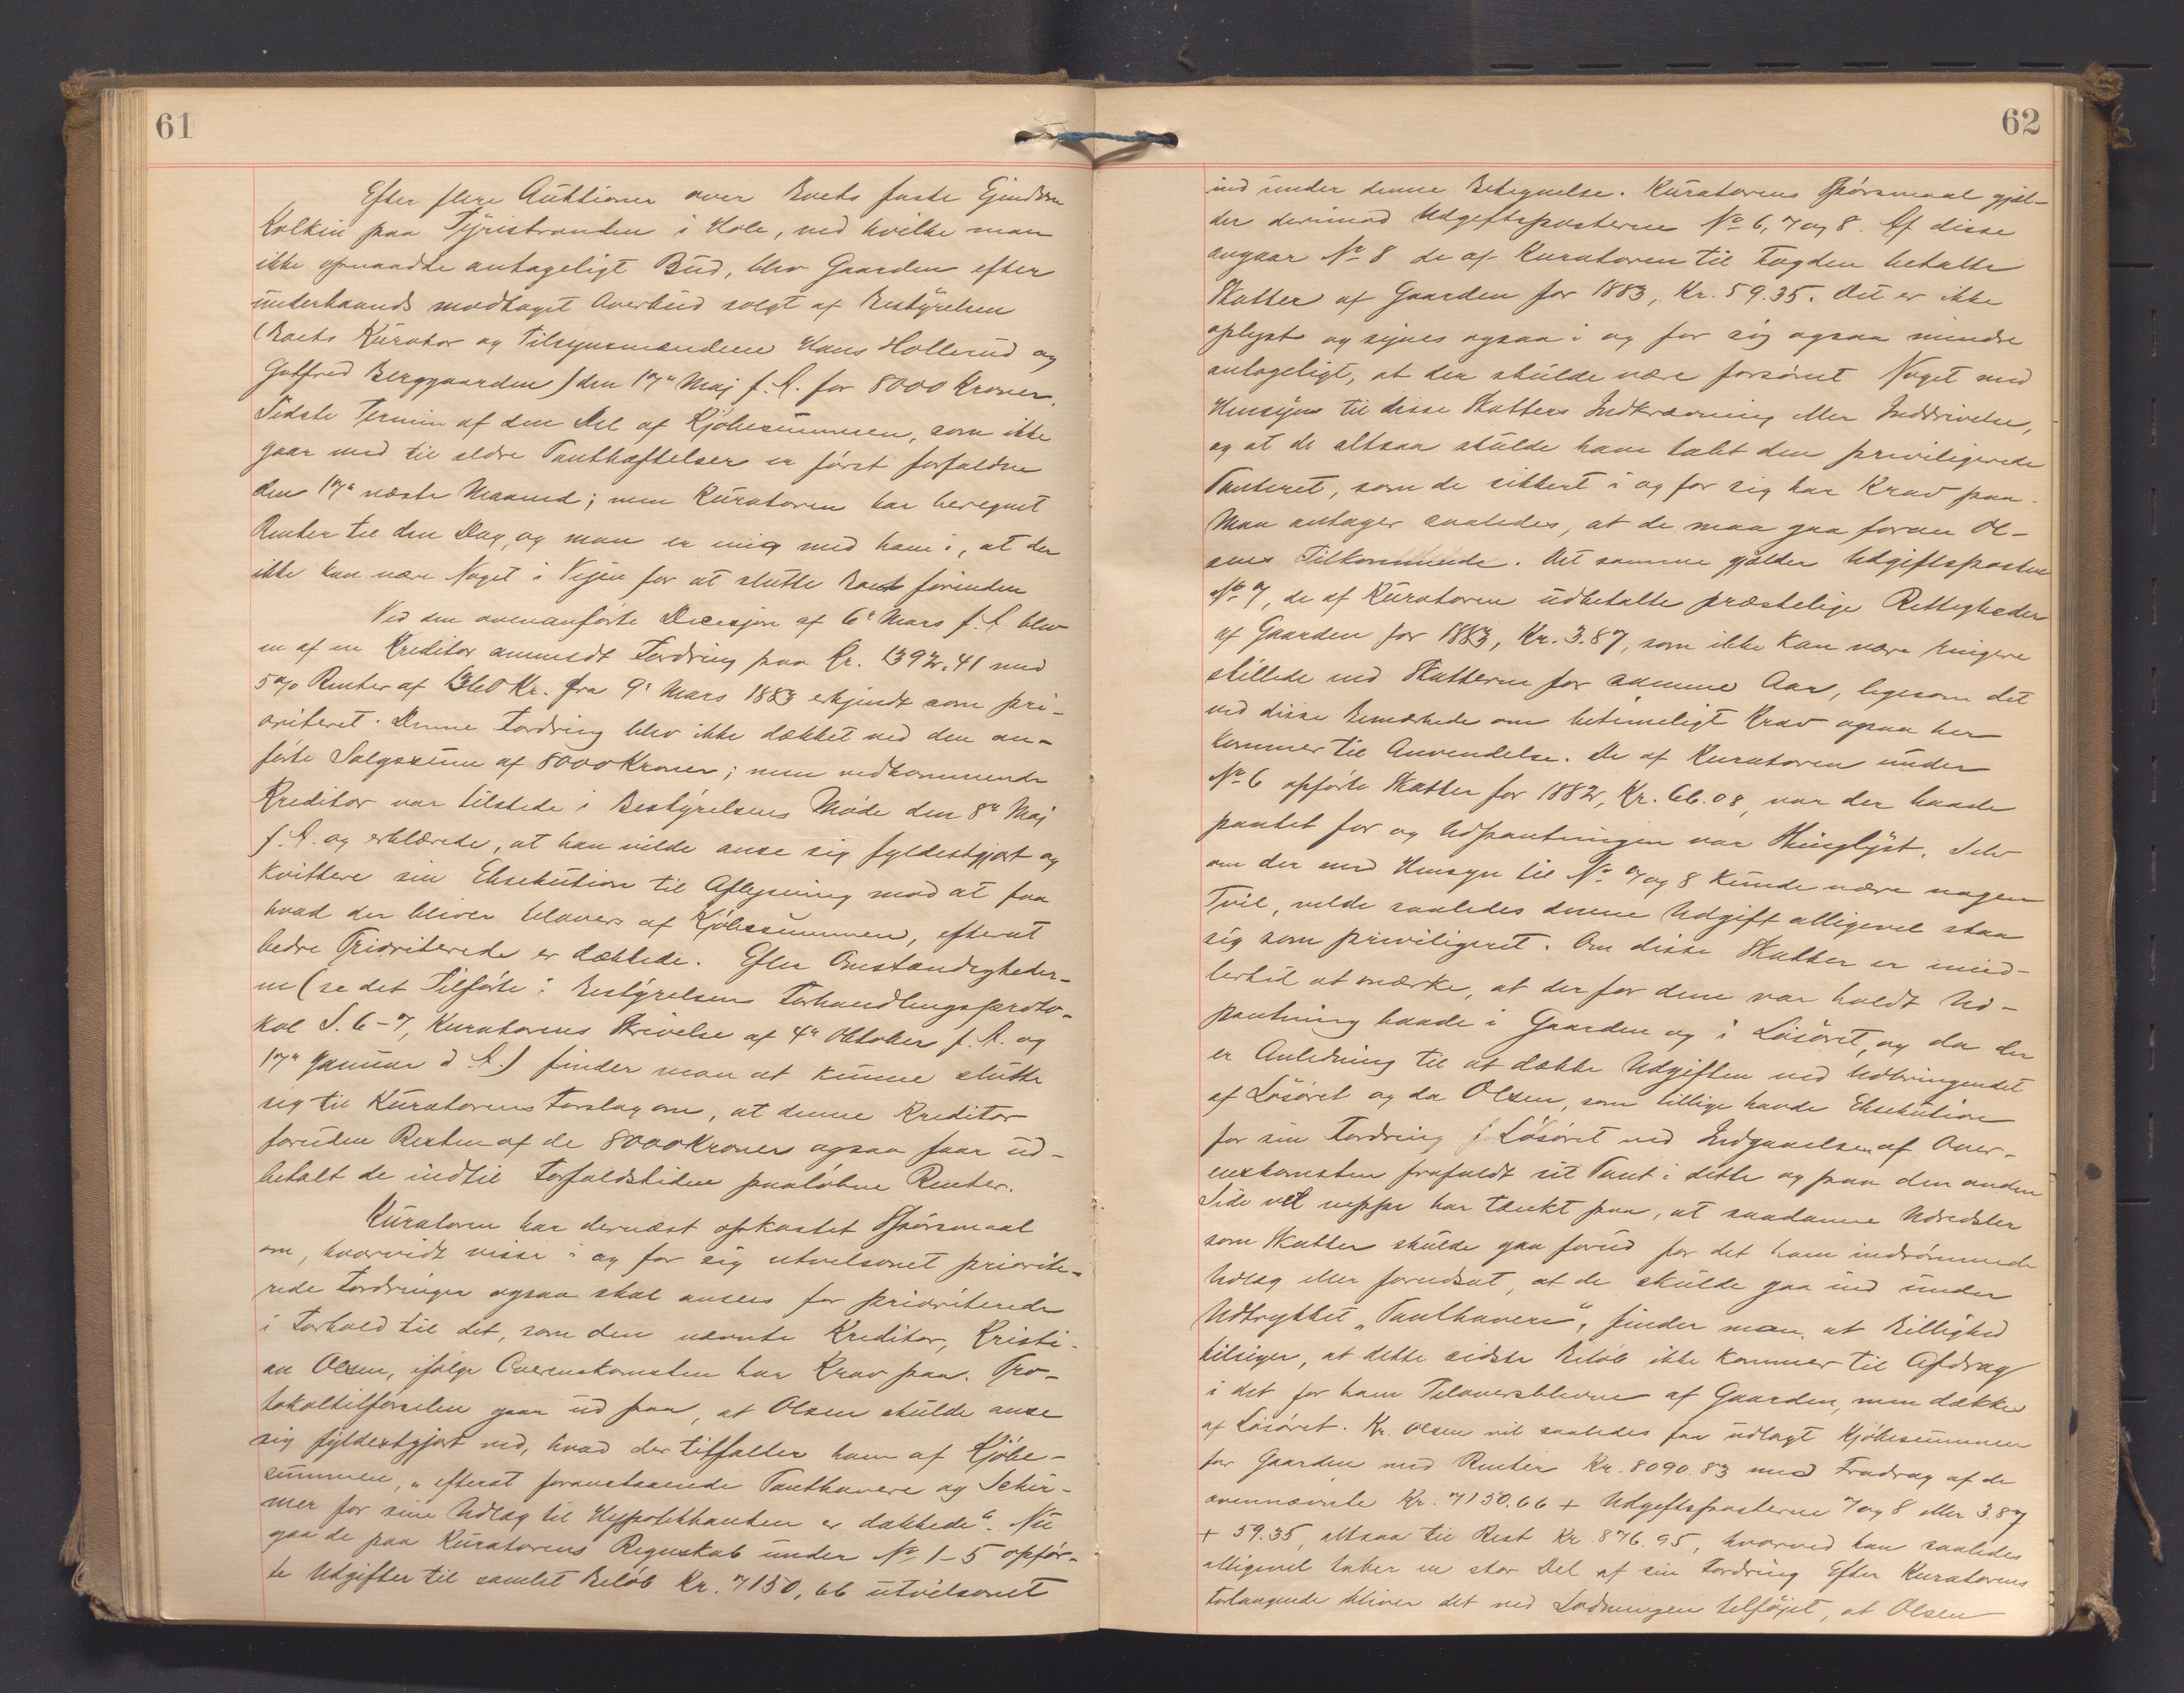 61
Efter flere Auktioner over Boets faste Ejendom
Kolkin paa Tyristranden i Hole, ved hvilke man
ikke opnaadde antageligt Bud, blev Gaarden efter
underhaands modtaget Overbud solgt af Bestyrelsen
(Boets Kurator og Tilsynsmændene Hans Hollerud og
Gutfred Berggaarden) den 17de Maj f. A. for 8000 Kroner.
Sidste Termin af den Del af Kjøbesummen, som ikke
gaar med til ældre Panthæftelser er først forfalden
den 17de næste Maaned; men Kuratoren har beregnet
Renter til den Dag, og man er enig med ham i, at der
ikke kan være Noget i Vejen for at slutte Boet forinden
Ved den ovenanførte Decisjon af 6te Mars f. A. blev
en af en Kreditor anmeldt Fordring paa Kr. 1392.41 med
5% Renter af 1360 Kr. fra 9de Mars 1883 erkjendt som pri-
oriteret. Denne Fordring blev ikke dækket ved den an-
førte Salgssum af 8000 Kroner; men vedkommende
Kreditor var tilstede i Bestyrelsens Møde den 8de Maj
f. A. og erklærede, at han vilde anse sig fyldestgjort og
kvittere sin Eksekution til Aflysning mod at faa
hvad der bliver tilovers af Kjøbesummen, efterat
bedre Prioriterede er dækkede. Efter Omstændigheder-
ne (se det Tilførte i Bestyrelsens Forhandlingsproto-
kol S. 6-7, Kuratorens Skrivelse af 4de Oktober f. A. og
17de Januar d. A.) finder man at kunne slutte
sig til Kuratorens Forslag om, at denne Kreditor
foruden Resten af de 8000 Kroner ogsaa faar ud-
betalt de indtil Forfaldstiden paaløbne Renter.
Kuratoren har dernæst opkastet Spørsmaal
om, hvorvidt visse i og for sig utvelsomt priorite-
rede Fordringer ogsaa skal ansees for prioriterede
i Forhold til det, som den nævnte Kreditor, Kristi-
an Olsen, ifølge Overenskomsten har Krav paa. Pro-
tokoltilførselen gaar ud paa, at Olsen skulde anse
sig fyldestgjort ved, hvad der tilfalder ham af Kjøbe-
summen, "efterat foranstaaende Panthavere og Schir-
mer for sine Udlæg til Hypothekbanken er dækkede". Nu
gaa de paa Kuratorens Regnskab under No 1-5 opfør-
te Udgifter til samlet Beløb Kr. 7150,66 utvilsomt
62
ind under denne Betegnelse. Kuratorens Spørsmaal gjæl-
der derimod Udgiftsposterne No 6, 7 og 8. Af disse
angaar No 8 de af Kuratoren til Fogden betalte
Skatter af Gaarden for 1883, Kr. 59.35. Det er ikke
oplyst og synes ogsaa i og for sig ogsaa mindre
antageligt, at der skulde være forsømt Noget med
Hensyn til disse Skatters Indkrævning eller Inddrivelse,
og at de altsaa skulde have tabt den priviligerede
Panteret, som de sikkert i og for sig har Krav paa.
Man antager saaledes, at de maa gaa foran Ol-
sens Tilkommende. Det samme gjælder Udgiftsposten
No 7, de af Kuratoren udbetalte præstelige Rettigheder
af Gaarden for 1883, Kr. 3.87, som ikke kan være ringere
stillede end Skatterne for samme Aar, ligesom det
ved disse Bemærkede om betimeligt Krav ogsaa her
kommer til Anvendelse. De af Kuratoren under
No 6 opførte Skatter for 1882, Kr. 66.08, var der baade
pantet for og Udpantningen var thinglyst. Selv
om der med Hensyn til No 7 og 8 kunde være nogen
Tvil, vilde saaledes denne Udgift alligevel staa
sig som priviligeret. Om disse Skatter er imid-
lertid at mærke, at der for dem var holdt Ud-
pantning baade i Gaarden og i Løsøret, og da der
er Anledning til at dække Udgiften ved Udbringendet
af Løsøret og da Olsen, som tillige havde Eksekution
for sin Fordring i Løsøret ved Indgaaelsen af Over-
enskomsten frafaldt sit Pant i dette og paa den anden
Side vel neppe har tænkt paa, at saadanne Udredsler
som Skatter skulde gaa forud for det ham indrømmede
Udlæg eller forudsat, at de skulde gaa ind under
Udtrykket "Panthavere", finder man, at Billighed
tilsiger, at dette sidste Beløb ikke kommer til Afdrag
i det for ham Tiloversblevne af Gaarden, men dækkes
af Løsøret. Kr. Olsen vil saaledes faa udlagt Kjøbesummen
for Gaarden med Renter Kr. 8090.83 med Fradrag af de
ovennævnte Kr. 7150.66 + Udgiftsposterne 7 og 8 eller 3.87
+ 59.35, altsaa til Rest Kr. 876.95, hvorved han saaledes
alligevel taber en stor Del af sin Fordring. Efter Kuratorens
Forlangende bliver det ved Lodningen tilføjet, at Olsen